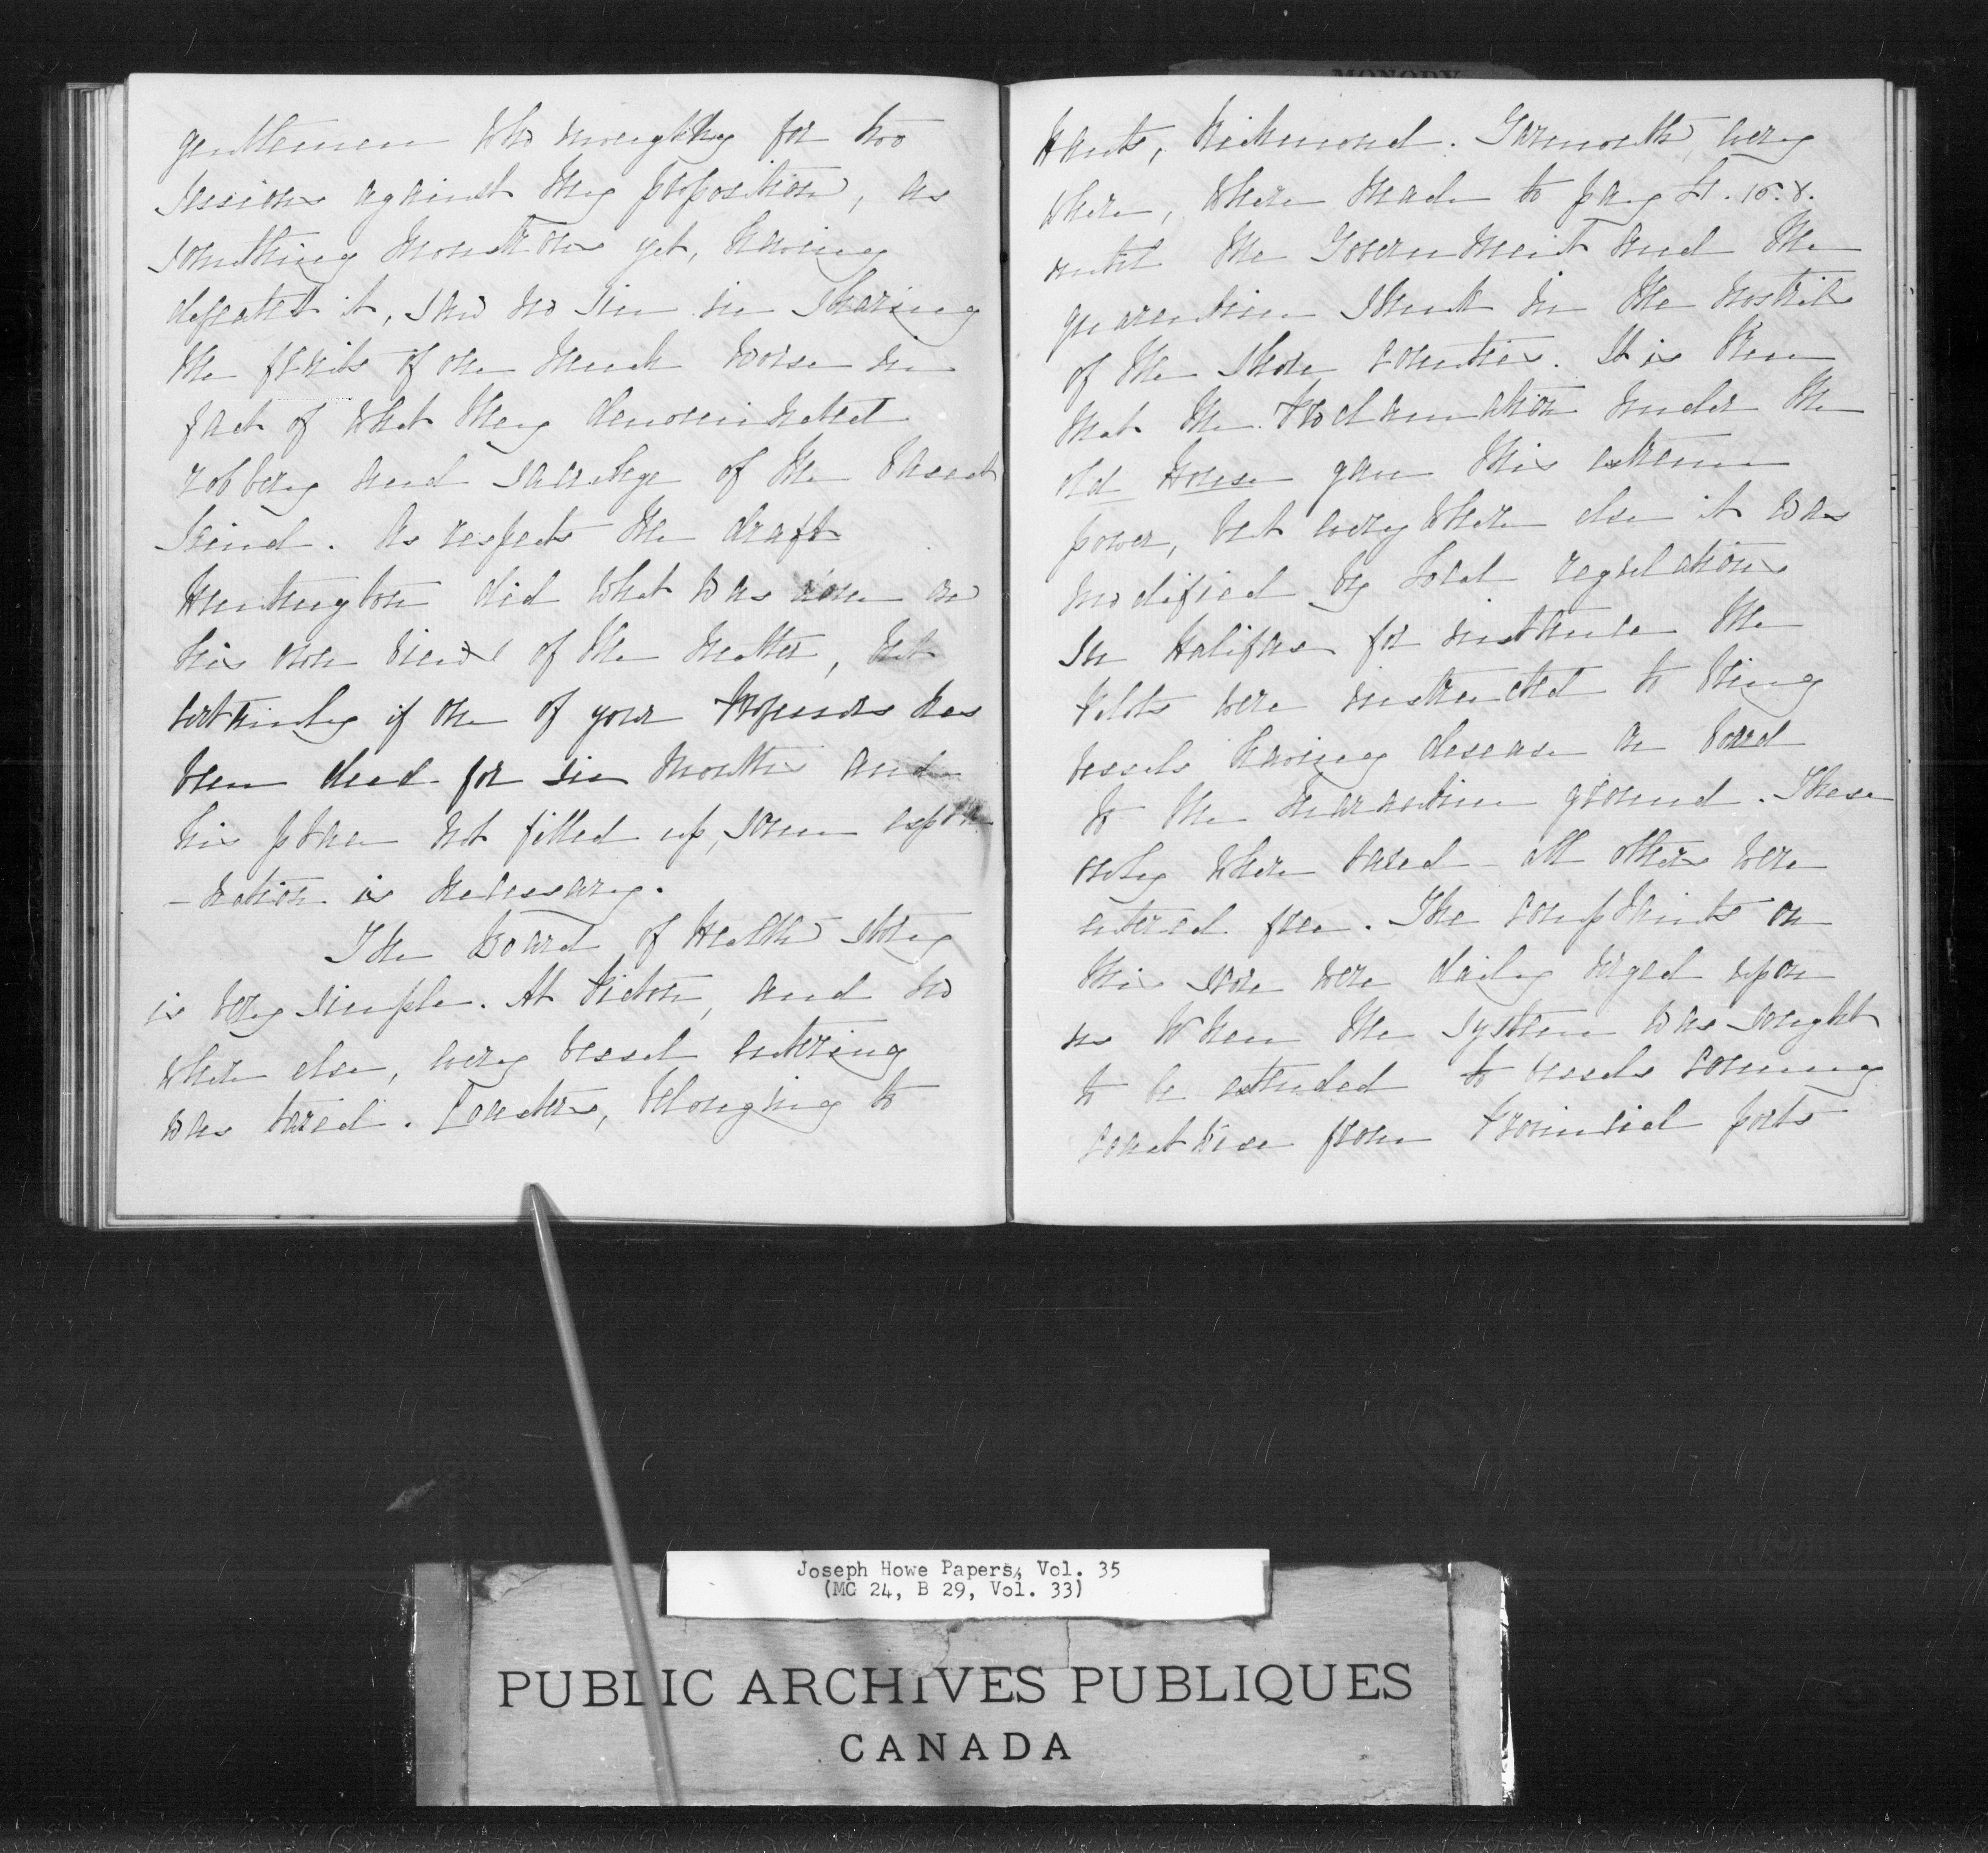 gentlemen who inveighing for two
sessions against my proposition, as
something monstrous yet, having
defeated it, saw no sin in sharing
the fruits of one much worse in
fact of what they denominated
robbery and sacrilege of the basest
kind. As respects the draft
Huntington did what was done on
his own view of the matter, but
certainly if one of your Professors has
been dead for six months and
his place not filled up, some expla
-nation is necessary.
The Board of Health story
is very simple. At Pictou, and no
where else, every vessel entering
was taxed. Coasters, belonging to
Hants, Richmond. Yarmouth, every
where, where made to pay £1.15.8.
until the Government and the
quarantine stunk in the nostrils
of the shore counties. It is true
that the Proclamation under the
old House gave this extreme
power, but every where else it was
modified by local regulations
In Halifax for instance the
Pilots were instructed to bring
vessels having disease on board
to the Quarantine ground. These
only where taxed - all others were
entered free. The complaints on
this score were daily urged upon
us When the system was sought
to be extended to vessels coming
coastwise from Provincial ports
MONODY
Joseph Howe Papers, Vol. 35
(MG 24, B 29, Vol. 33)
PUBLIC ARCHIVES PUBLIQUES
CANADA